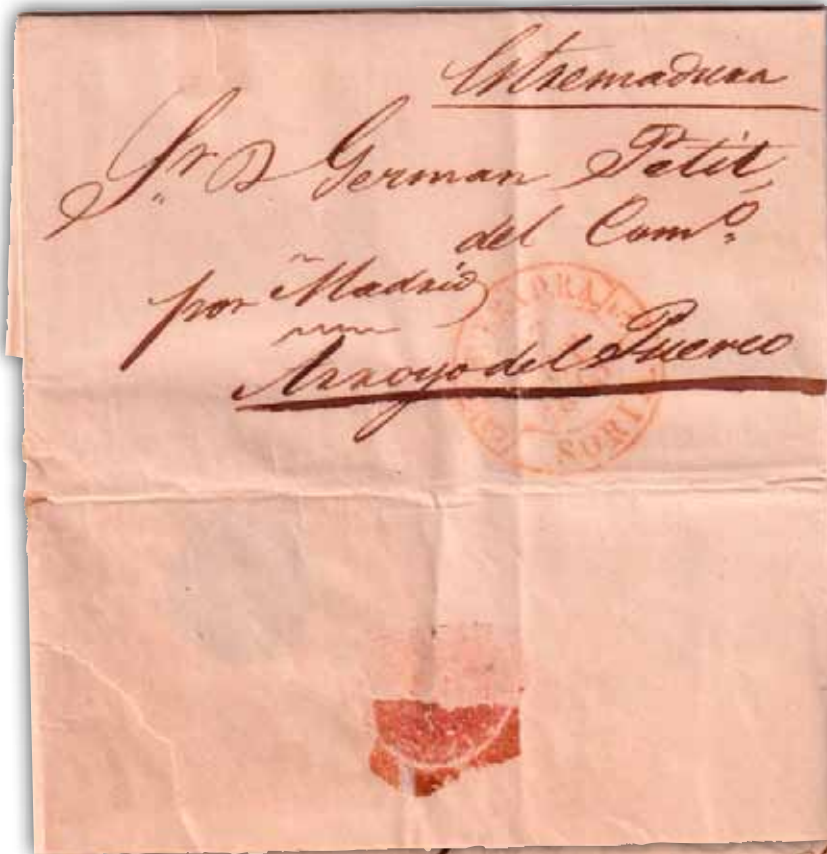 Estremadura
Sr. D German Petit
del Como.
por Madrid
Arroyo del Puerco
SORI